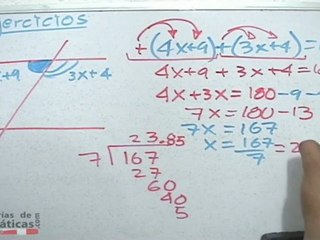 ercicios
+(4x+9)+(3x+4)=
x+9 3x+4
4x+9+3x+4=
4x+3x=180-9-
7x=180-13
7x=167
x=167/7=2
23.85
7 167
27
60
40
5
rias de
máticas
.com